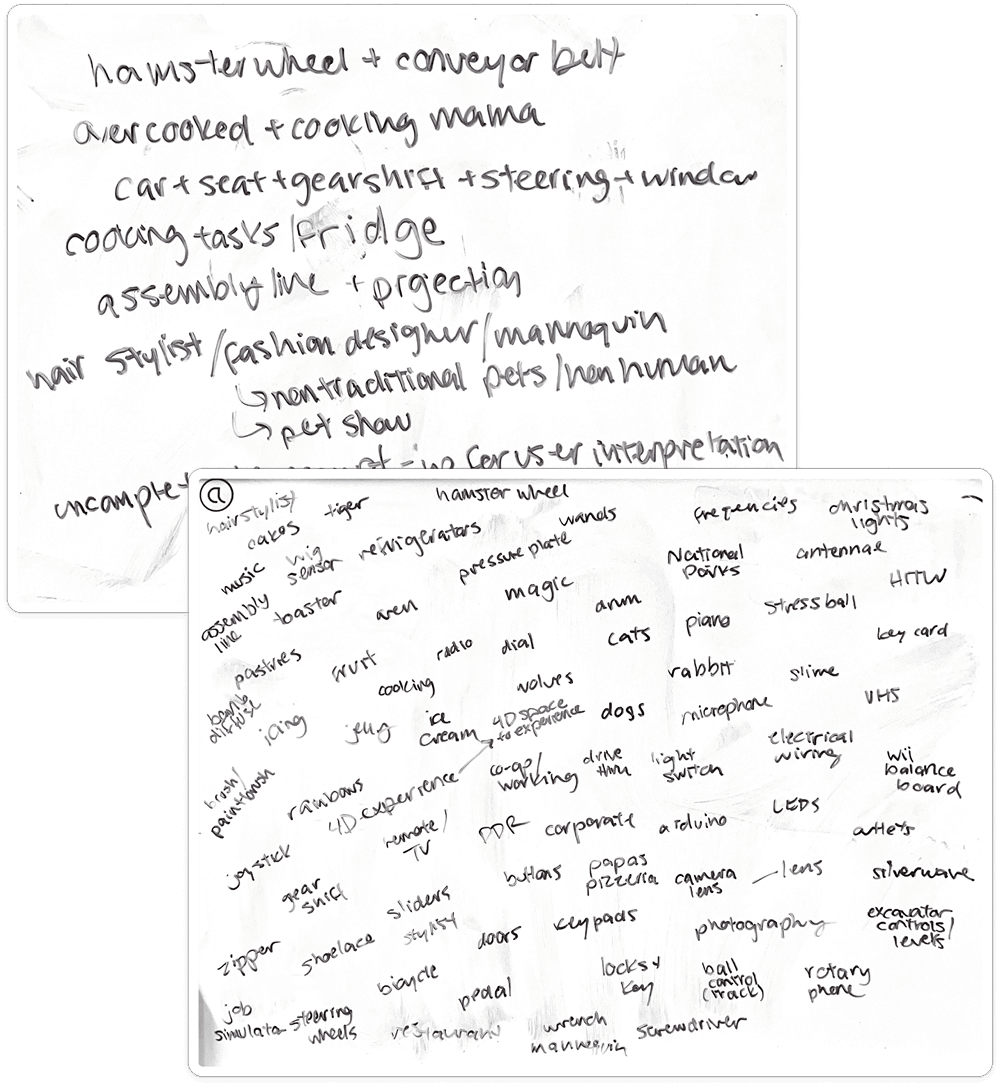 hamster wheel + conveyor belt
overcooked + cooking mama
car + seat + gearshift + steering + window
cooking tasks/fridge
assembly line + projection
hair stylist/fashion designer/mannequin
↳ nontraditional pets/nonhuman
↳ pet show
for user interpretation
a
hairstylist/ tiger hamster wheel frequencies christmas
cakes wands lights
music wig refrigerators pressure plate National antennae
sensor Parks HTTW
assembly toaster oven magic arum piano stress ball
line key card
pastries fruit radio dial cats
cooking wolves rabbit slime
icing jelly ice 4D space dogs microphone VHS
cream to experience
brush/ rainbows 4D experience co-op/ drive light electrical wii
paintbrush working thru switch wiring balance
board
joystick remote/ DDR corporate arduino LEDS outlets
TV
gear sliders buttons papas camera lens silverware
shift pizzeria lens
zipper shoelace stylist doors keypads photography excavator
controls/
levels
job steering bicycle pedal locks + ball rotary
simulator wheels key control phone
(track)
restaurant wrench screwdriver
mannequin